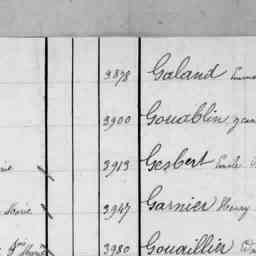 3878 Galand
3900 Gouablin
3913 Gesbert Emile
Marie 3947 Garnier Henry
3980 Gouaillin